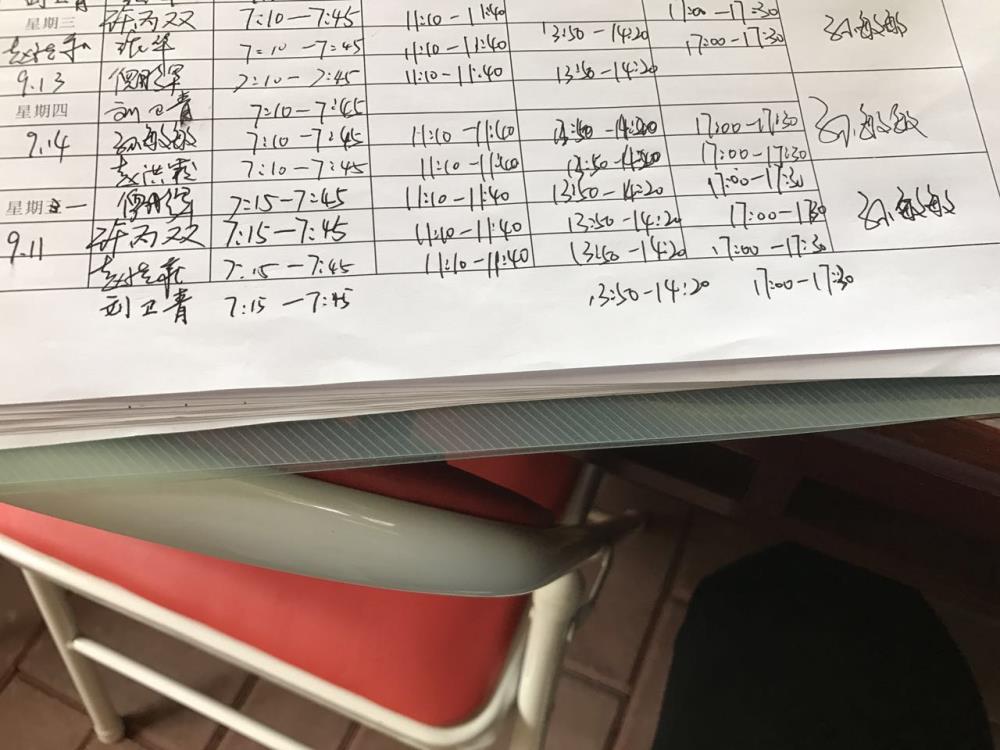 星期三 许丙双 7:10-7:45 11:10-11:40 17:00-17:30
7:10-7:45 11:10-11:40 13:50-14:20 17:00-17:30
9.13 7:10-7:45 11:10-11:40 13:50-14:20
星期四 刘卫青 7:10-7:45
9.14 孙敏敏 7:10-7:45 11:10-11:40 13:50-14:20 17:00-17:30 孙敏敏
赵洪霞 7:10-7:45 11:10-11:40 13:50-14:20 17:00-17:30
星期一 7:15-7:45 11:10-11:40 13:50-14:20 17:00-17:30
9.11 许丙双 7:15-7:45 11:10-11:40 13:50-14:20 17:00-1730 孙敏敏
7:15-7:45 11:10-11:40 13:50-14:20 17:00-17:30
刘卫青 7:15-7:45 13:50-14:20 17:00-17:30